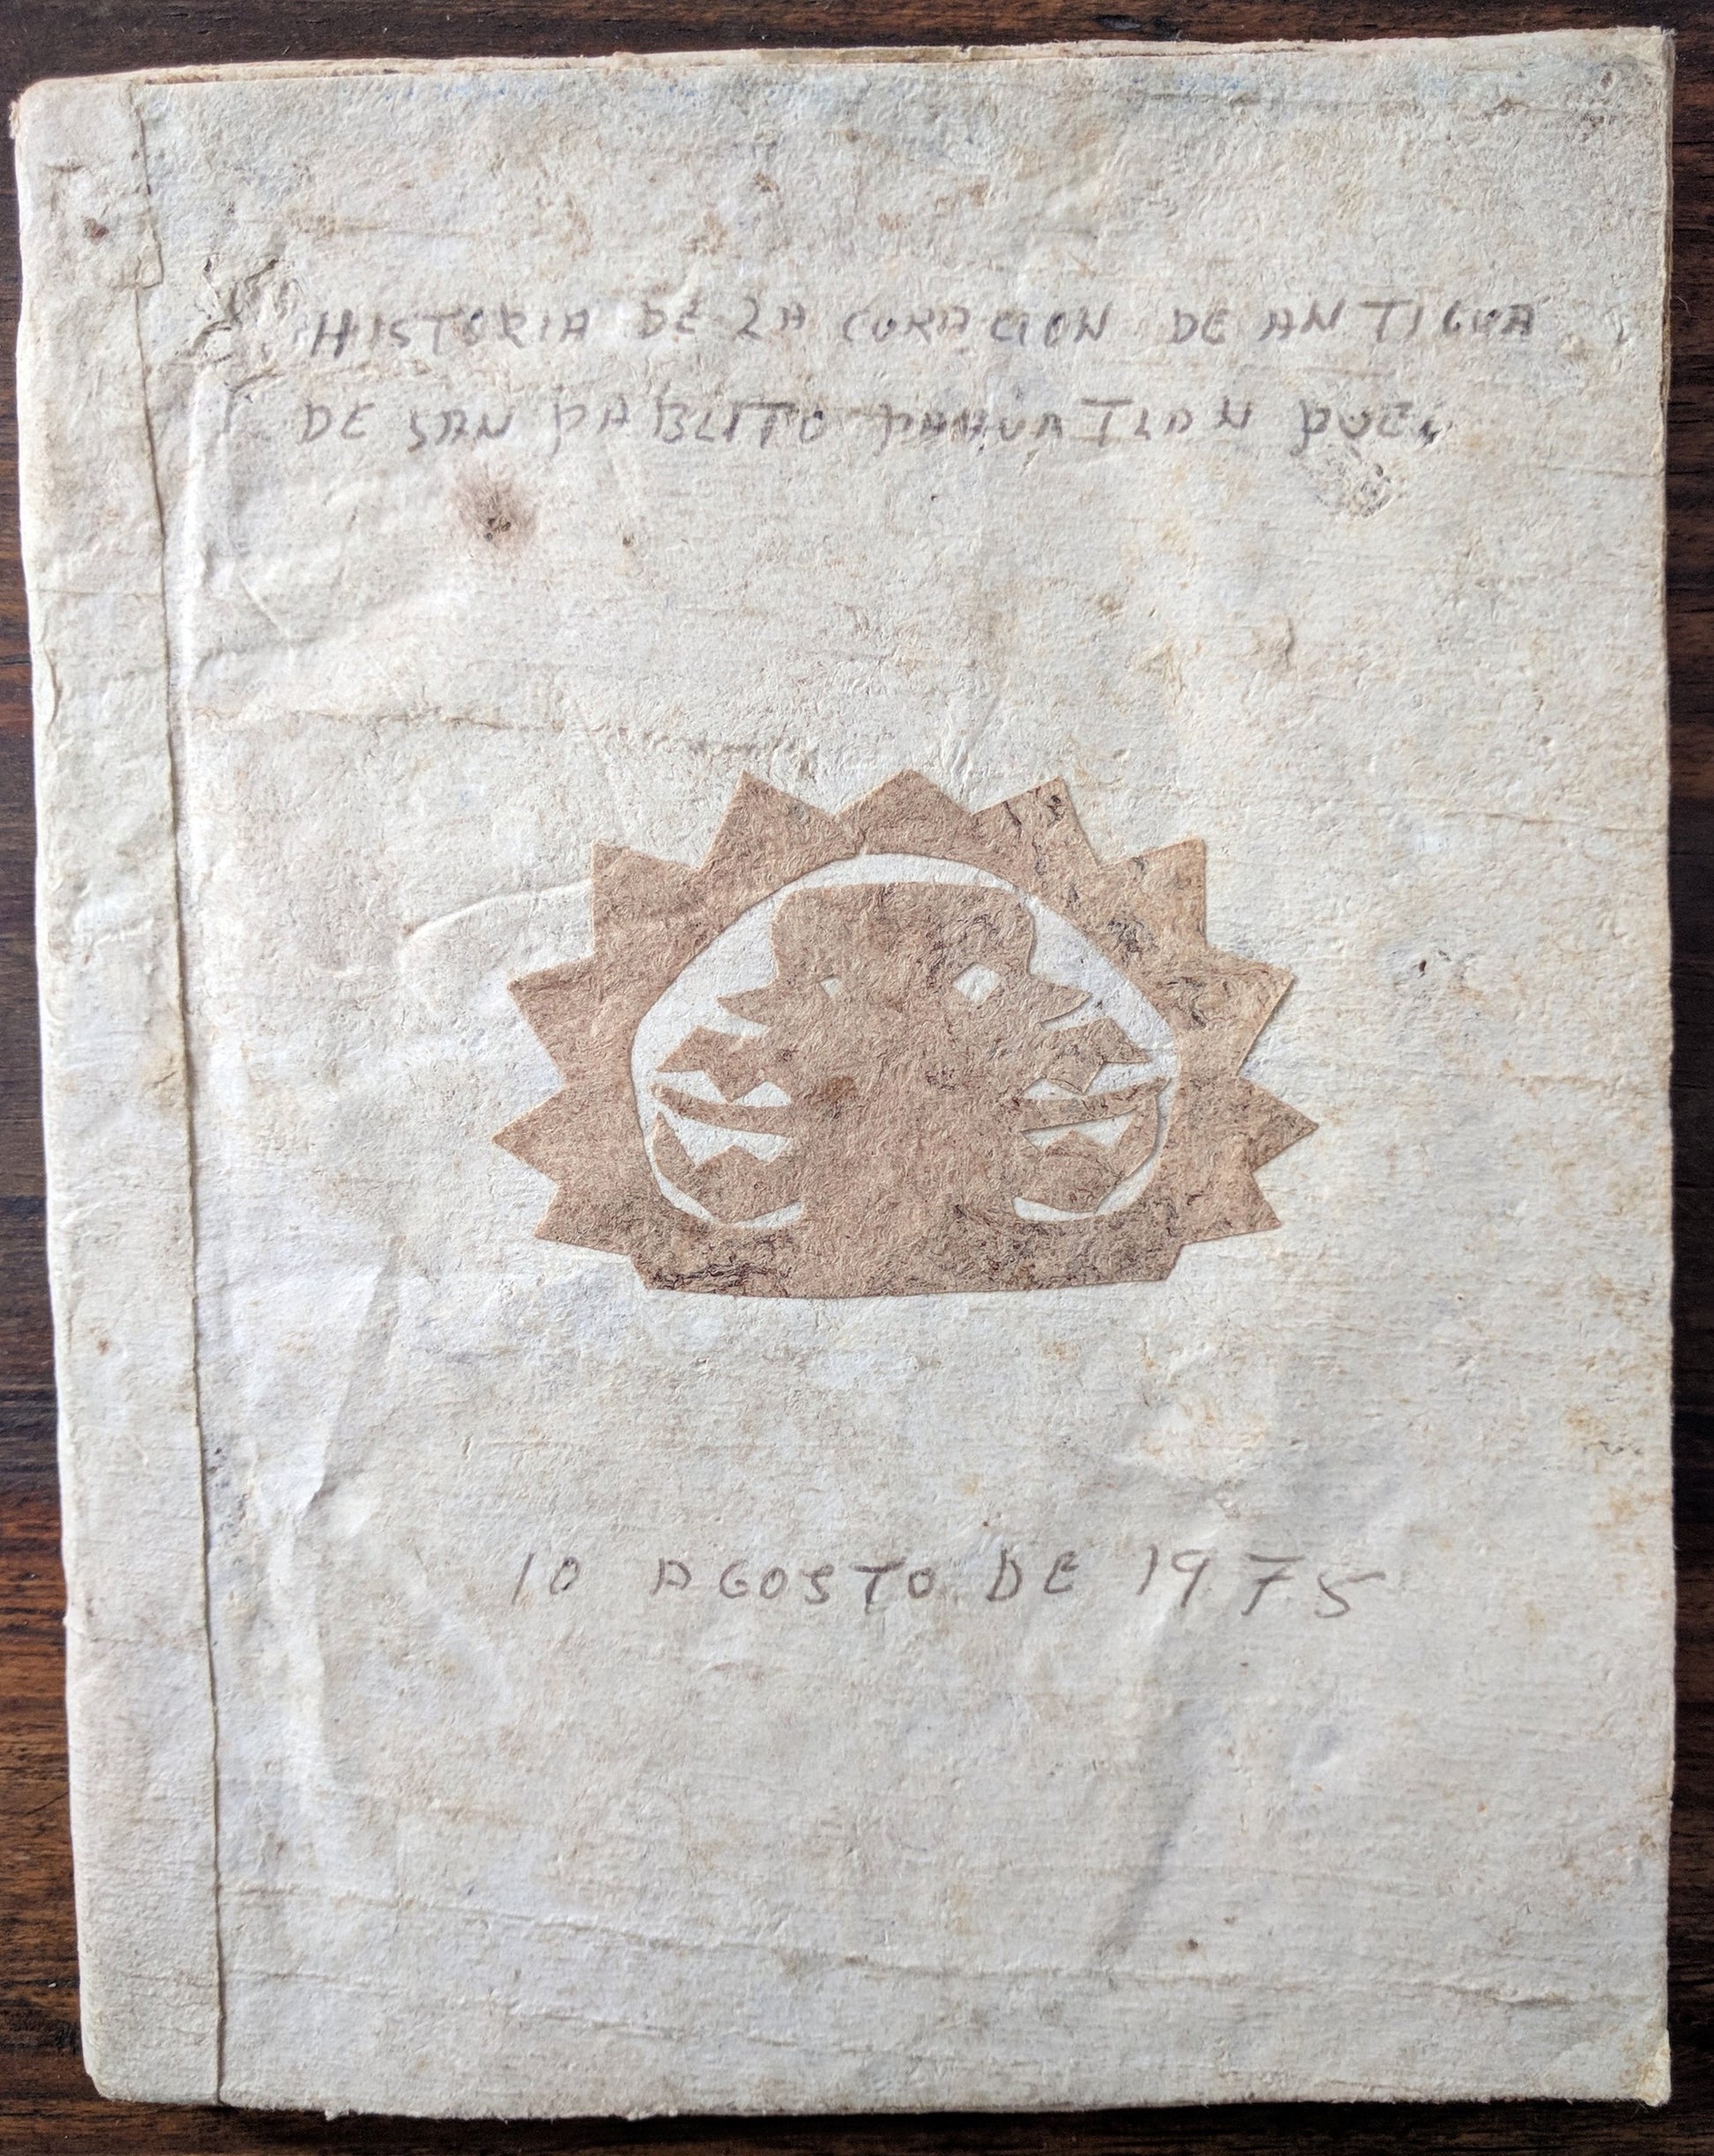 HISTORIA DE LA CURACION DE ANTIGUA
DE SAN PABLITO PAHUATLAN PUE.
10 AGOSTO DE 1975